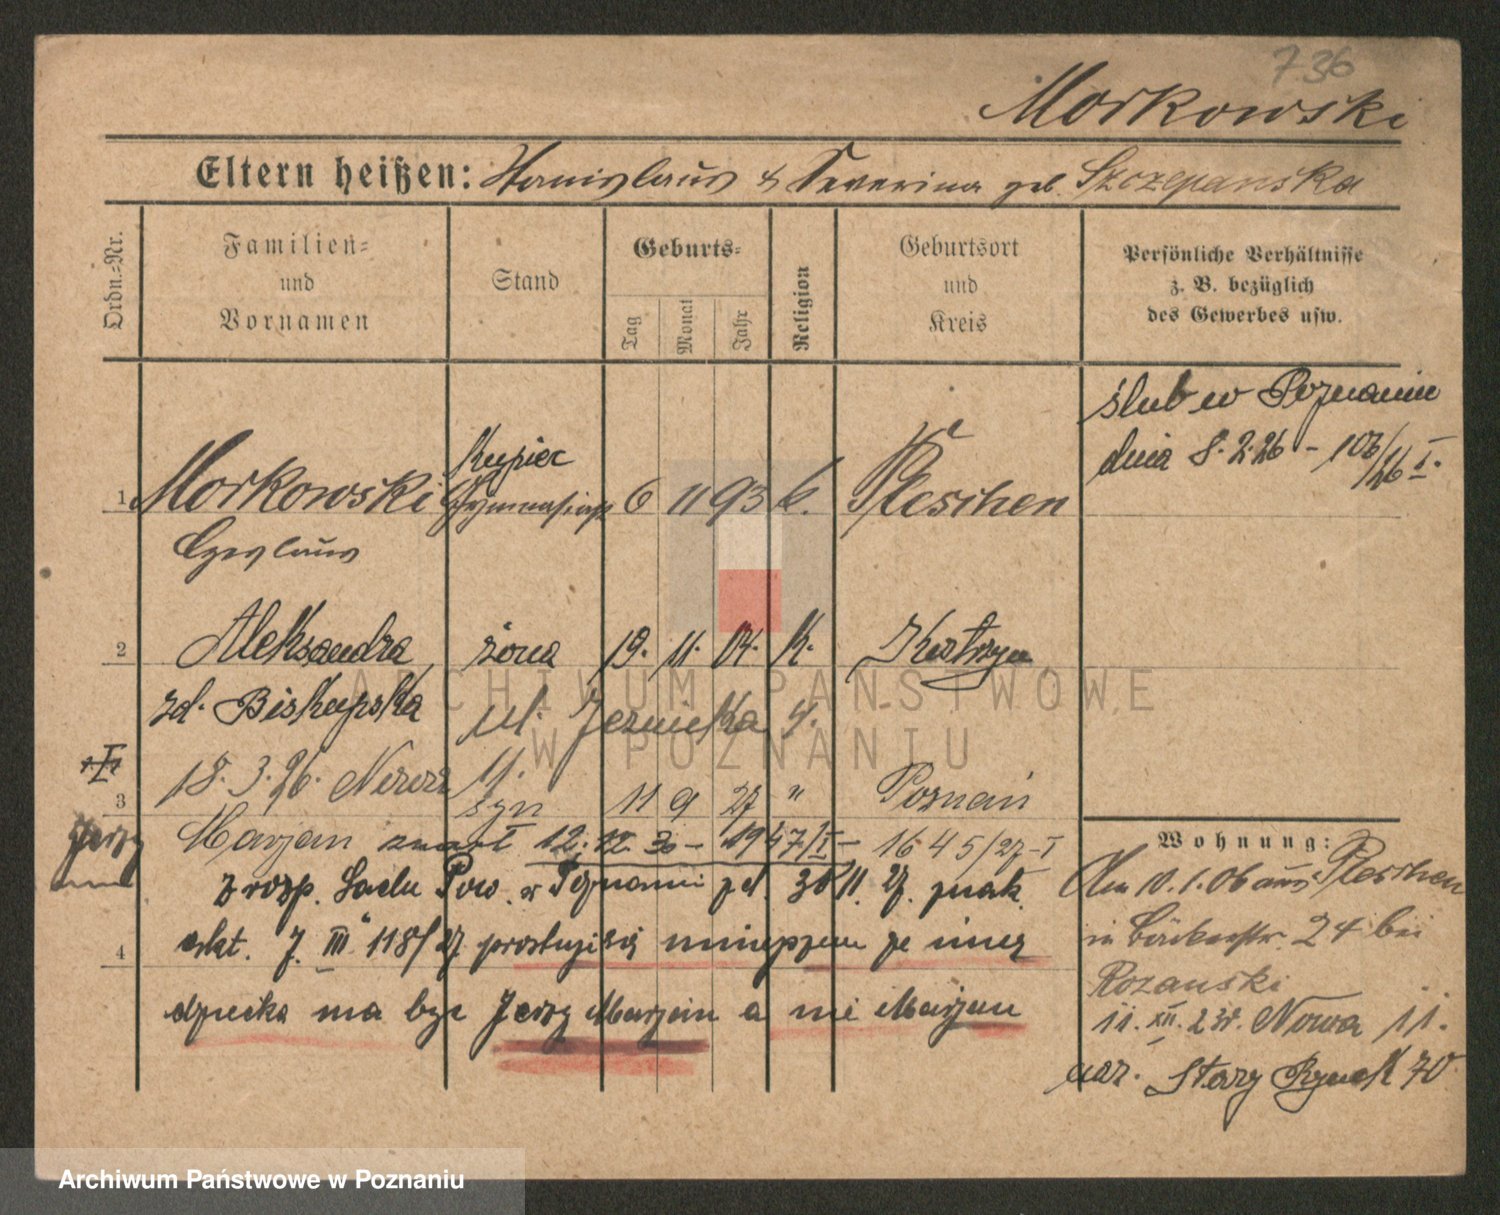 736
Morkowski
Eltern heißen: Stanislaus & Severina geb. Szczepanska
Ordn.-Nr.
Familien- und Vornamen
Stand
Geburts-
Tag Monat Jahr
Religion
Geburtsort und Kreis
Persönliche Verhältnisse
z. B. bezüglich
des Gewerbes usw.
ślub w Poznaniu
dnia 8.2.26 - 106/26 I.
Kupiec
1 Morkowski Gymnasiast 6 11 93 k. Pleschen
Czeslaus
2 Aleksandra żona 19. 11. 04. K. Kostrzyn
zd. Biskupska ul. 4.
18. 3. 26. Nowa 11.
3 syn 11 9 27 " Poznań
Jerzy Marjan 12. 30 - 1947/I - 1645/27-I
z rozp. Sadu Pow. w Poznaniu zd. 30 11. 27. znak
4 akt. 7. III 118/27 prostuje się niniejszem że imię
dziecka ma być Jerzy Marjan a nie Marjan
Wohnung:
Am 10.1.06 aus Pleschen
in Bäckerstr. 24 bei
Rozanski
11. XII. 23r. Nowa 11.
Stary Rynek 70
ARCHIWUM PAŃSTWOWE
W POZNANIU
Archiwum Państwowe w Poznaniu